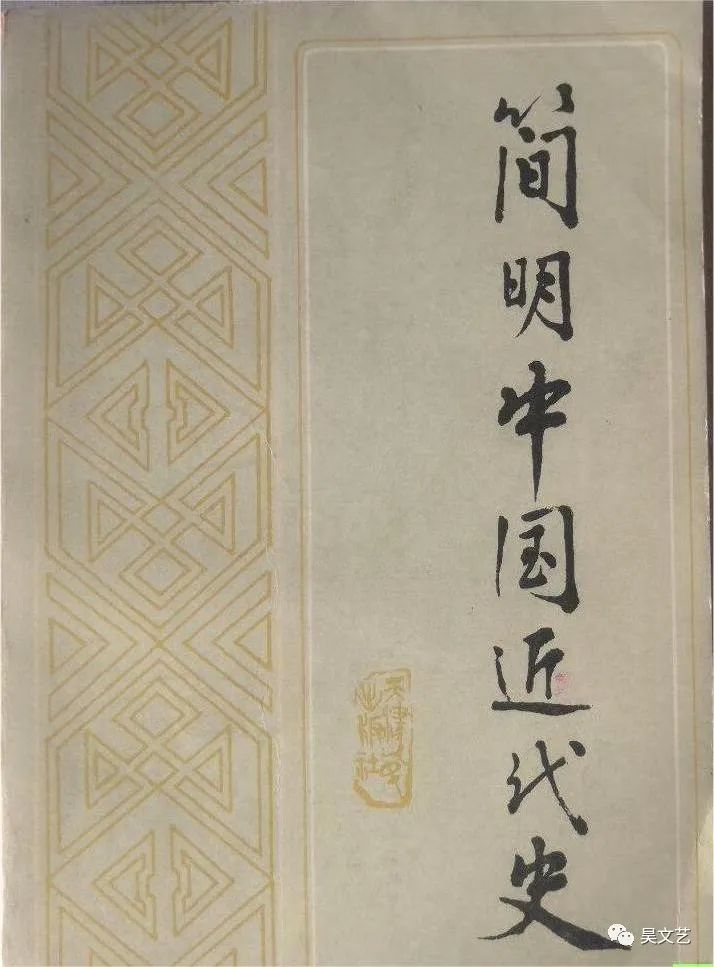 简明中国近代史
天津人民
出版社
昊文艺